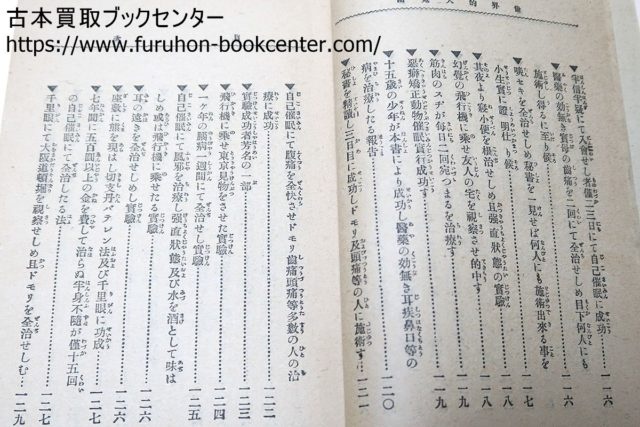 古本買取ブックセンター
https://www.furuhon-bookcenter.com/
▼半信半疑にて入會せし者僅二三日にて自己催眠に成功
▼醫藥の効無き實母の齒痛を二回にて全治せしめ目下何人にも
施術し得るに至り候 一一六
▼咳キセを全治せしめ秘書を一見せば何人にも施術出來る事を
小生實に證し申候 一一七
▼其夜より寢小便を全治せし且强直狀態の實驗 一一八
▼筋肉のスヂが毎日二回宛つまるを治療す 一一八
▼幻覺の飛行機に乘せ友人の宅を視察させ的中す 一一九
▼惡癖矯正動物催眠實行成功す 一一九
▼十五歲の少年が本書により成功し醫藥の効無き耳疾鼻口等の
病を治療したる報告 一二〇
▼秘書を精讀し三日目に成功しドモリ及頭痛等の人に施術す 一二一
▼自己催眠にて腹痛を全快させドモリ齒痛頭痛等多數の人の治
療に成功 一二二
▼實驗成功者芳名の一部 一二三
▼飛行機に乘せ東京見物をさせた實驗 一二四
▼一ヶ年の眼病一週間にて全治せし實驗 一二五
▼自己催眠にて風邪を治療し强直狀態及び水を酒として味は
しめ或は飛行機に乘せたる實驗
▼耳の遠きを全治せしめし實驗 一二六
▼座敷に熊を現はし切支丹バテレン法及び千里眼に功成 一二六
▼七年間に五百圓以上の金を費して治らぬ半身不隨が僅十五回
の自己催眠にて全治したる法 一二七
▼千里眼にて大阪道頓堀を視察せしめ且ドモリを全治せしむ 一二九